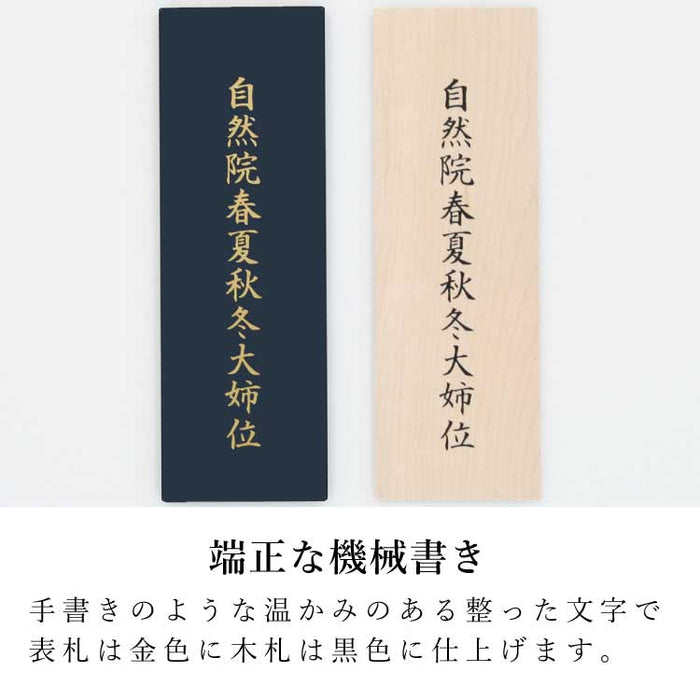 自然院春夏秋冬大姉位
自然院春夏秋冬大姉位
端正な機械書き
手書きのような温かみのある整った文字で
表札は金色に木札は黒色に仕上げます。